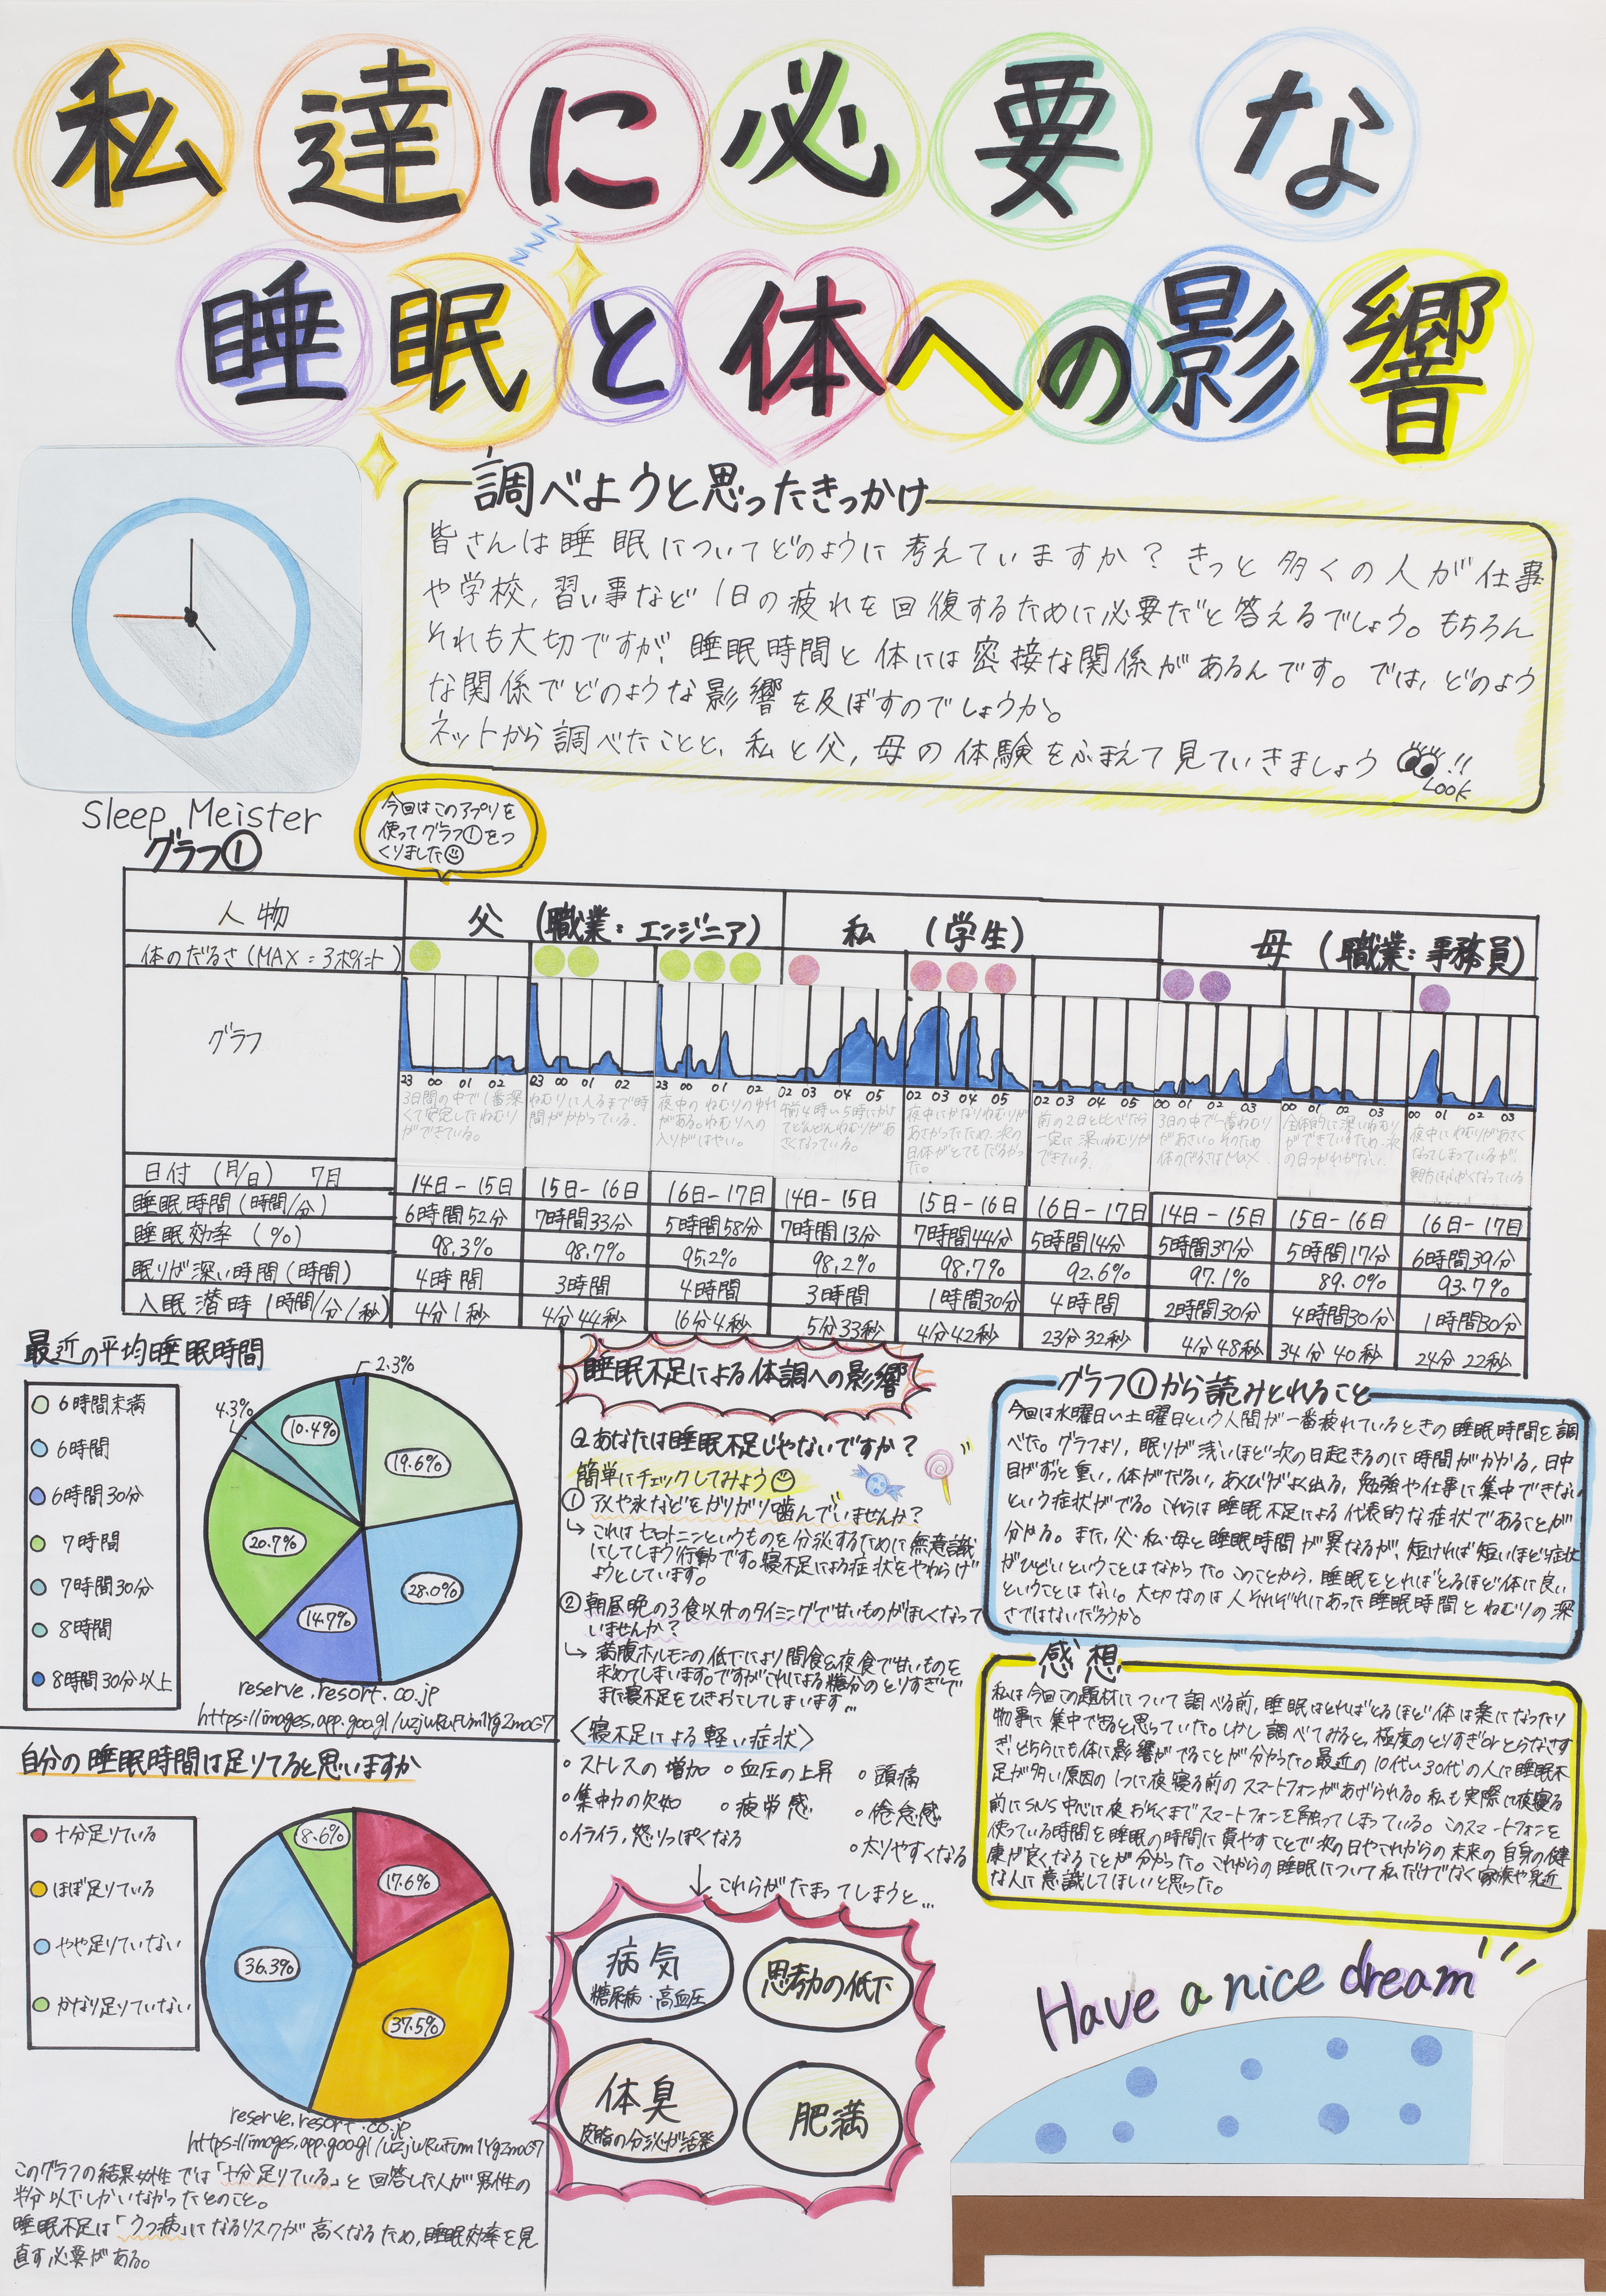 私達に必要な
睡眠と体への影響
調べようと思ったきっかけ
皆さんは睡眠についてどのように考えていますか？きっと多くの人が仕事
や学校，習い事など1日の疲れを回復するために必要だと答えるでしょう。もちろん
それも大切ですが，睡眠時間と体には密接な関係があるんです。では，どのよう
な関係でどのような影響を及ぼすのでしょうか。
ネットから調べたことと，私と父，母の体験をふまえて見ていきましょう!!
LOOK
Sleep Meister
グラフ①
今回はこのアプリを
使ってグラフ①をつ
くりました
人物 父（職業：エンジニア） 私（学生） 母（職業：事務員）
体のだるさ（MAX＝3ポイント）
グラフ
23 00 01 02 23 00 01 02 23 00 01 02 02 03 04 05 02 03 04 05 02 03 04 05 00 01 02 03 00 01 02 03 00 01 02 03
3日間の中で1番深
くて安定したねむり
ができている。
ねむりに入るまで時
間がかかっている。
夜中のねむりのゆれ
がある。ねむりへの
入りがはやい。
午前4時い5時にかけ
てどんどんねむりがあ
さくなっている。
夜中にかなりねむりが
あさかったため，次の
日体がとてもだるかっ
た。
前の2日と比べたら
一定に深いねむりが
できている。
3日の中で一番ねむり
があさい。そのため
体のだるさはMAX
全体的に深いねむり
ができているため，次
の日つかれがない。
夜中にねむりがあさく
なってしまっているが，
朝方はふかくなっている
日付（月/日） 7月 14日-15日 15日-16日 16日-17日 14日-15日 15日-16日 16日-17日 14日-15日 15日-16日 16日-17日
睡眠時間（時間/分） 6時間52分 7時間33分 5時間58分 7時間13分 7時間44分 5時間14分 5時間37分 5時間17分 6時間39分
睡眠効率（%） 98.3% 98.7% 95.2% 98.2% 98.7% 92.6% 97.1% 89.0% 93.7%
眠りが深い時間（時間） 4時間 3時間 4時間 3時間 1時間30分 4時間 2時間30分 4時間30分 1時間30分
入眠潜時（時間/分/秒） 4分1秒 4分44秒 16分4秒 5分33秒 4分42秒 23分32秒 4分48秒 34分40秒 24分22秒
最近の平均睡眠時間
6時間未満
6時間
6時間30分
7時間
7時間30分
8時間
8時間30分以上
2.3%
4.3%
10.4%
19.6%
20.7%
28.0%
14.7%
reserve.resort.co.jp
https://images.app.goo.gl/uzjwRuFUm1YgZmoG7
自分の睡眠時間は足りてると思いますか
十分足りている
ほぼ足りている
やや足りていない
かなり足りていない
8.6%
17.6%
36.3%
37.5%
reserve.resort.co.jp
https://images.app.goo.gl/uzjwRuFUm1YgZmoG7
このグラフの結果女性では「十分足りている」と回答した人が男性の
半分以下しかいなかったとのこと。
睡眠不足は「うつ病」になるリスクが高くなるため，睡眠効率を見
直す必要がある。
睡眠不足による体調への影響
Q.あなたは睡眠不足じゃないですか？
簡単にチェックしてみよう
① アメや氷などをガリガリ噛んでいませんか？
↳ これはセロトニンというものを分泌するために無意識
にしてしまう行動です。寝不足による症状をやわらげ
ようとしています。
② 朝昼晩の3食以外のタイミングで甘いものがほしくなって
いませんか？
↳ 満腹ホルモンの低下により間食&夜食で甘いものを
求めてしまいます。ですがこれによる糖分のとりすぎで
また寝不足をひきおこしてしまいます…
〈寝不足による軽い症状〉
◦ストレスの増加 ◦血圧の上昇 ◦頭痛
◦集中力の欠如 ◦疲労感 ◦倦怠感
◦イライラ，怒りっぽくなる ◦太りやすくなる
↓これらがたまってしまうと…
病気
糖尿病・高血圧
思考力の低下
体臭
皮脂の分泌が活発
肥満
グラフ①から読みとれること
今回は水曜日い土曜日という人間が一番疲れているときの睡眠時間を調
べた。グラフより，眠りが浅いほど次の日起きるのに時間がかかる，日中
目がずっと重い，体がだるい，あくびがよく出る，勉強や仕事に集中できない
という症状がでる。これらは睡眠不足による代表的な症状であることが
分かる。また，父・私・母と睡眠時間が異なるが，短ければ短いほど症状
がひどいということはなかった。このことから，睡眠をとればとるほど体に良い
ということはない。大切なのは人それぞれにあった睡眠時間とねむりの深
さではないだろうか。
感想
私は今回この題材について調べる前，睡眠はとればとるほど体は楽になったり
物事に集中できると思っていた。しかし調べてみると，極度のとりすぎorとらなさす
ぎ，どちらにも体に影響がでることが分かった。最近の10代い30代の人に睡眠不
足が多い原因の1つに夜寝る前のスマートフォンがあげられる。私も実際に夜寝る
前にSNS中心に夜おそくまでスマートフォンを触ってしまっている。このスマートフォンを
使っている時間を睡眠の時間に費やすことで次の日やこれからの未来の自身の健
康が良くなることが分かった。これからの睡眠について私だけでなく家族や身近
な人に意識してほしいと思った。
Have a nice dream